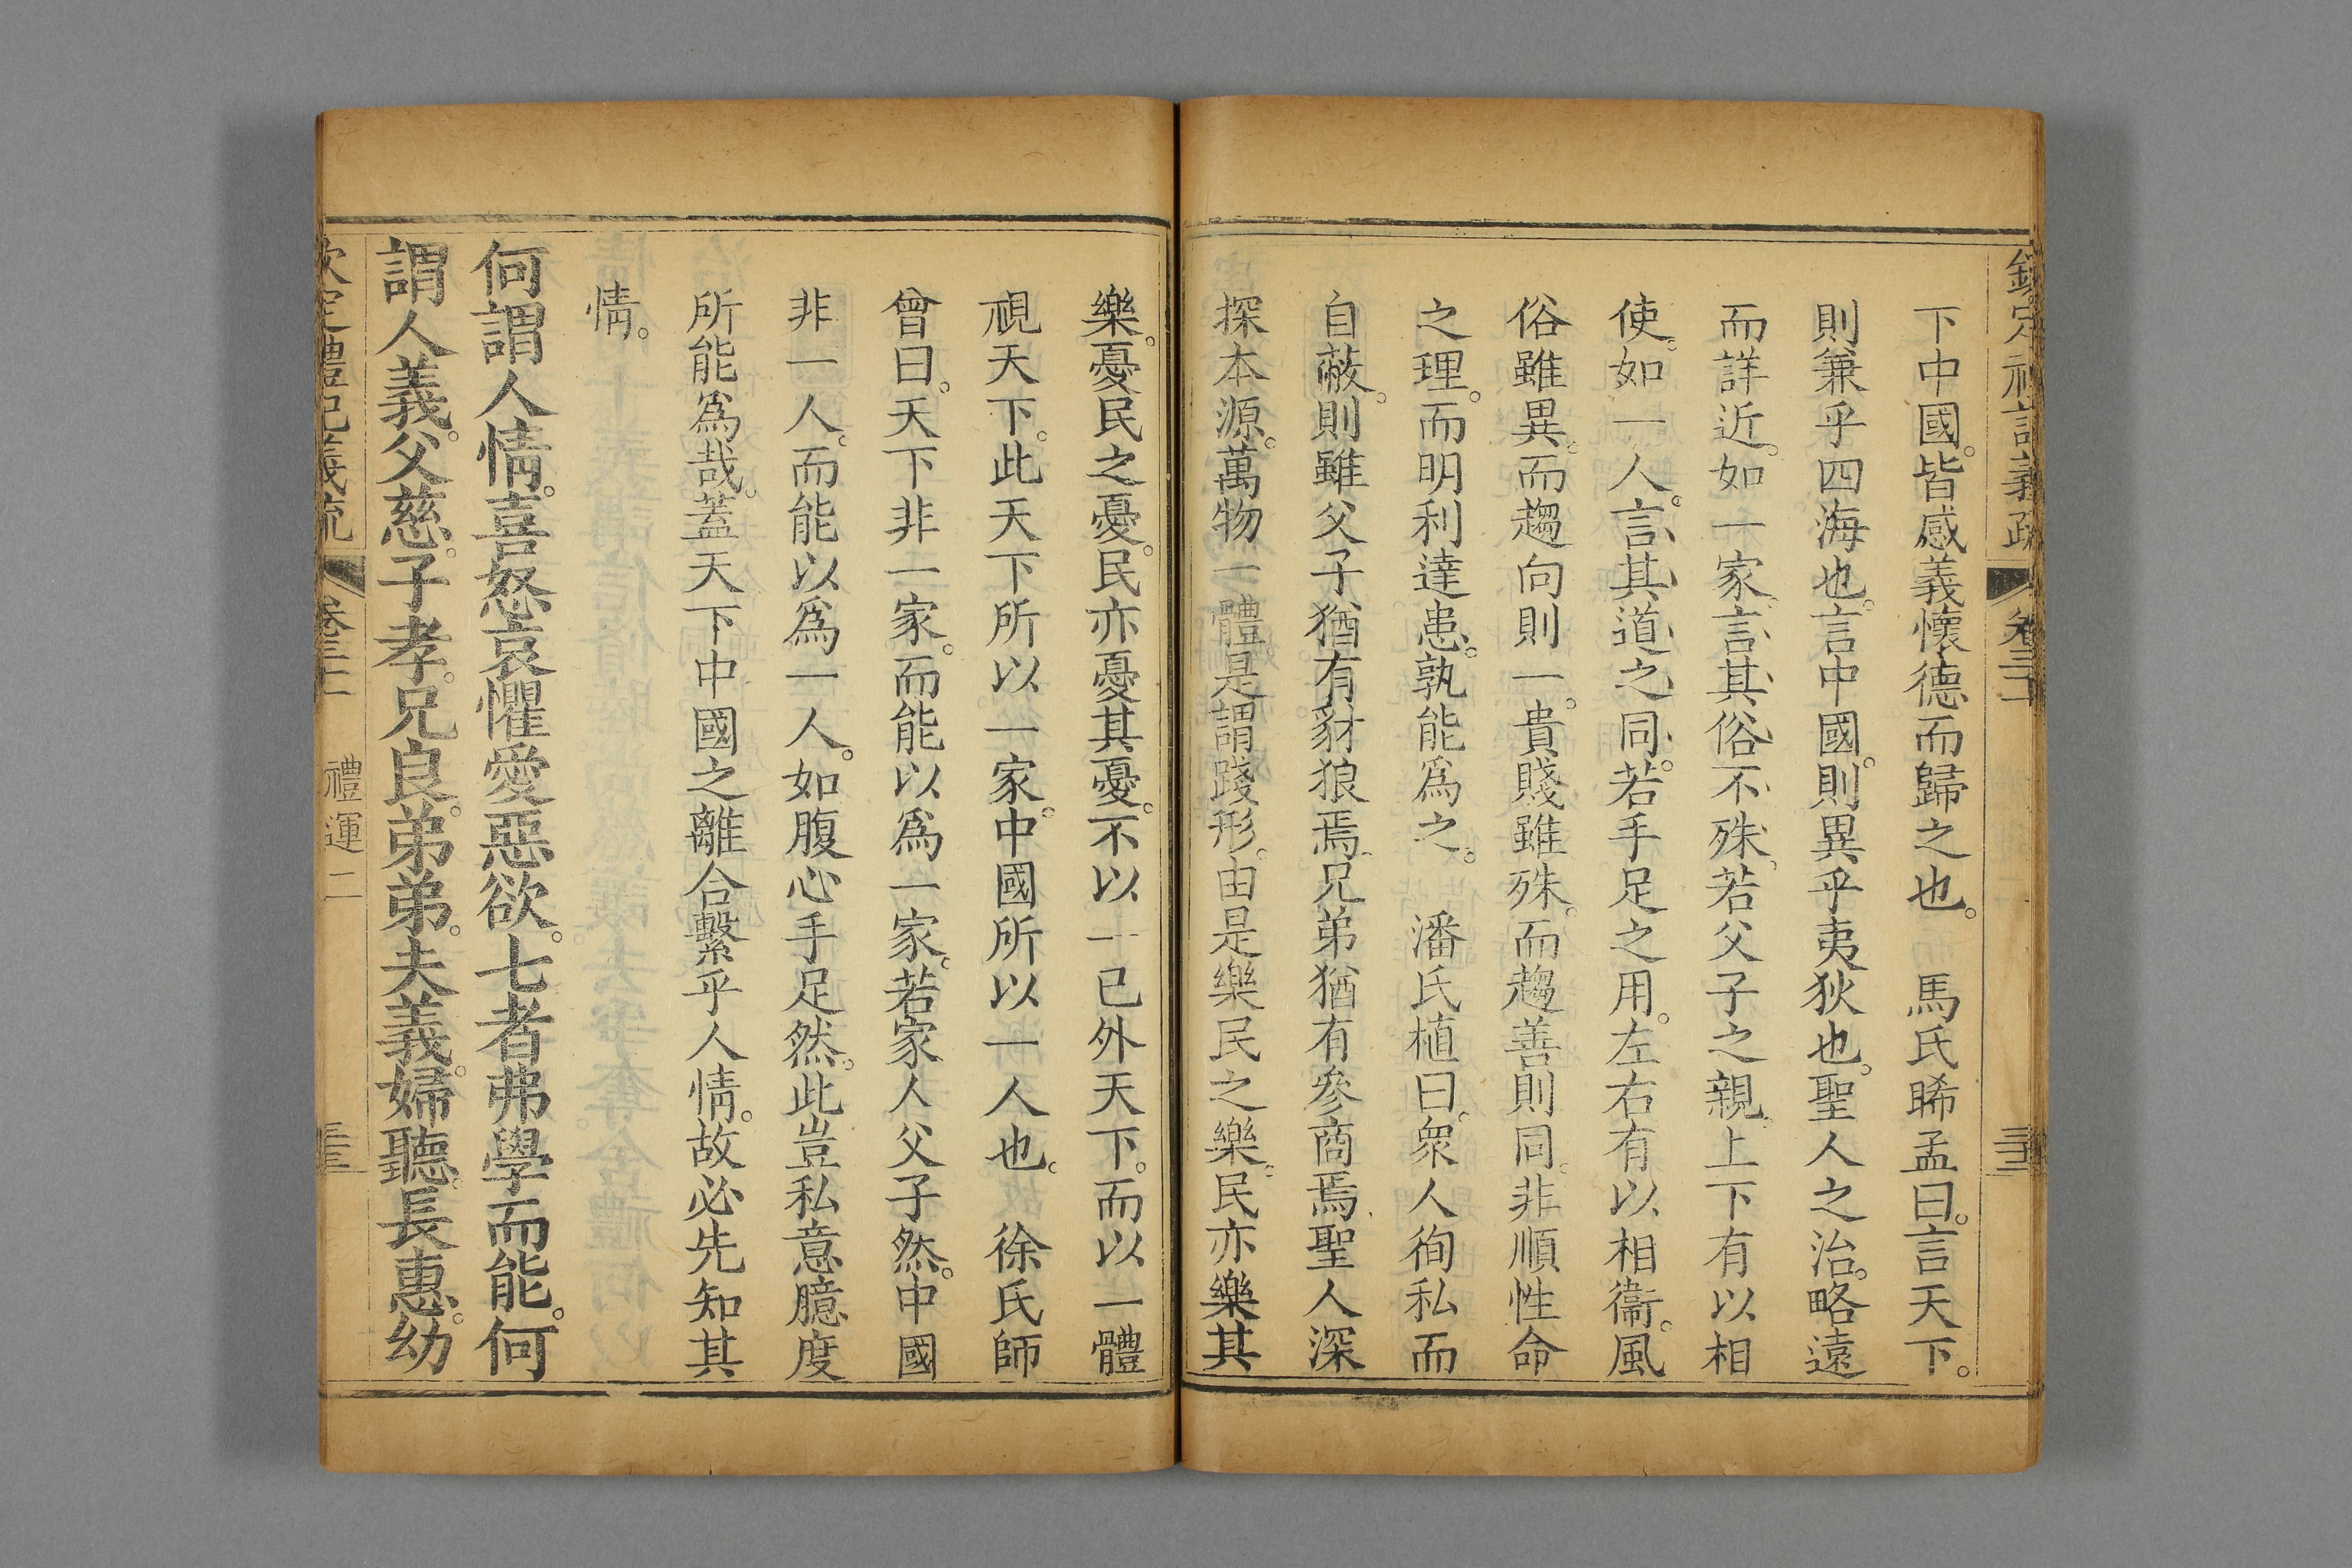 下中國。皆感義懷德而歸之也。　馬氏睎孟曰。言天下。
則兼乎四海也。言中國。則異乎夷狄也。聖人之治。略遠
而詳近。如一家。言其俗不殊。若父子之親。上下有以相
使。如一人。言其道之同。若手足之用。左右有以相衞。風
俗雖異。而趨向則一。貴賤雖殊。而趨善則同。非順性命
之理。而明利達患。孰能爲之。　潘氏植曰。衆人徇私而
自蔽。則雖父子猶有豺狼焉。兄弟猶有參商焉。聖人深
探本源。萬物一體。是謂踐形。由是樂民之樂。民亦樂其
樂。憂民之憂。民亦憂其憂。不以一己外天下。而以一體
視天下。此天下所以一家。中國所以一人也。　徐氏師
曾曰。天下非一家。而能以爲一家。若家人父子然。中國
非一人。而能以爲一人。如腹心手足然。此豈私意臆度
所能爲哉。蓋天下中國之離合繫乎人情。故必先知其
情。
何謂人情。喜怒哀懼愛惡欲。七者弗學而能。何
謂人義。父慈。子孝。兄良。弟弟。夫義。婦聽。長惠。幼
欽定禮記義疏　卷三十　禮運二　三三